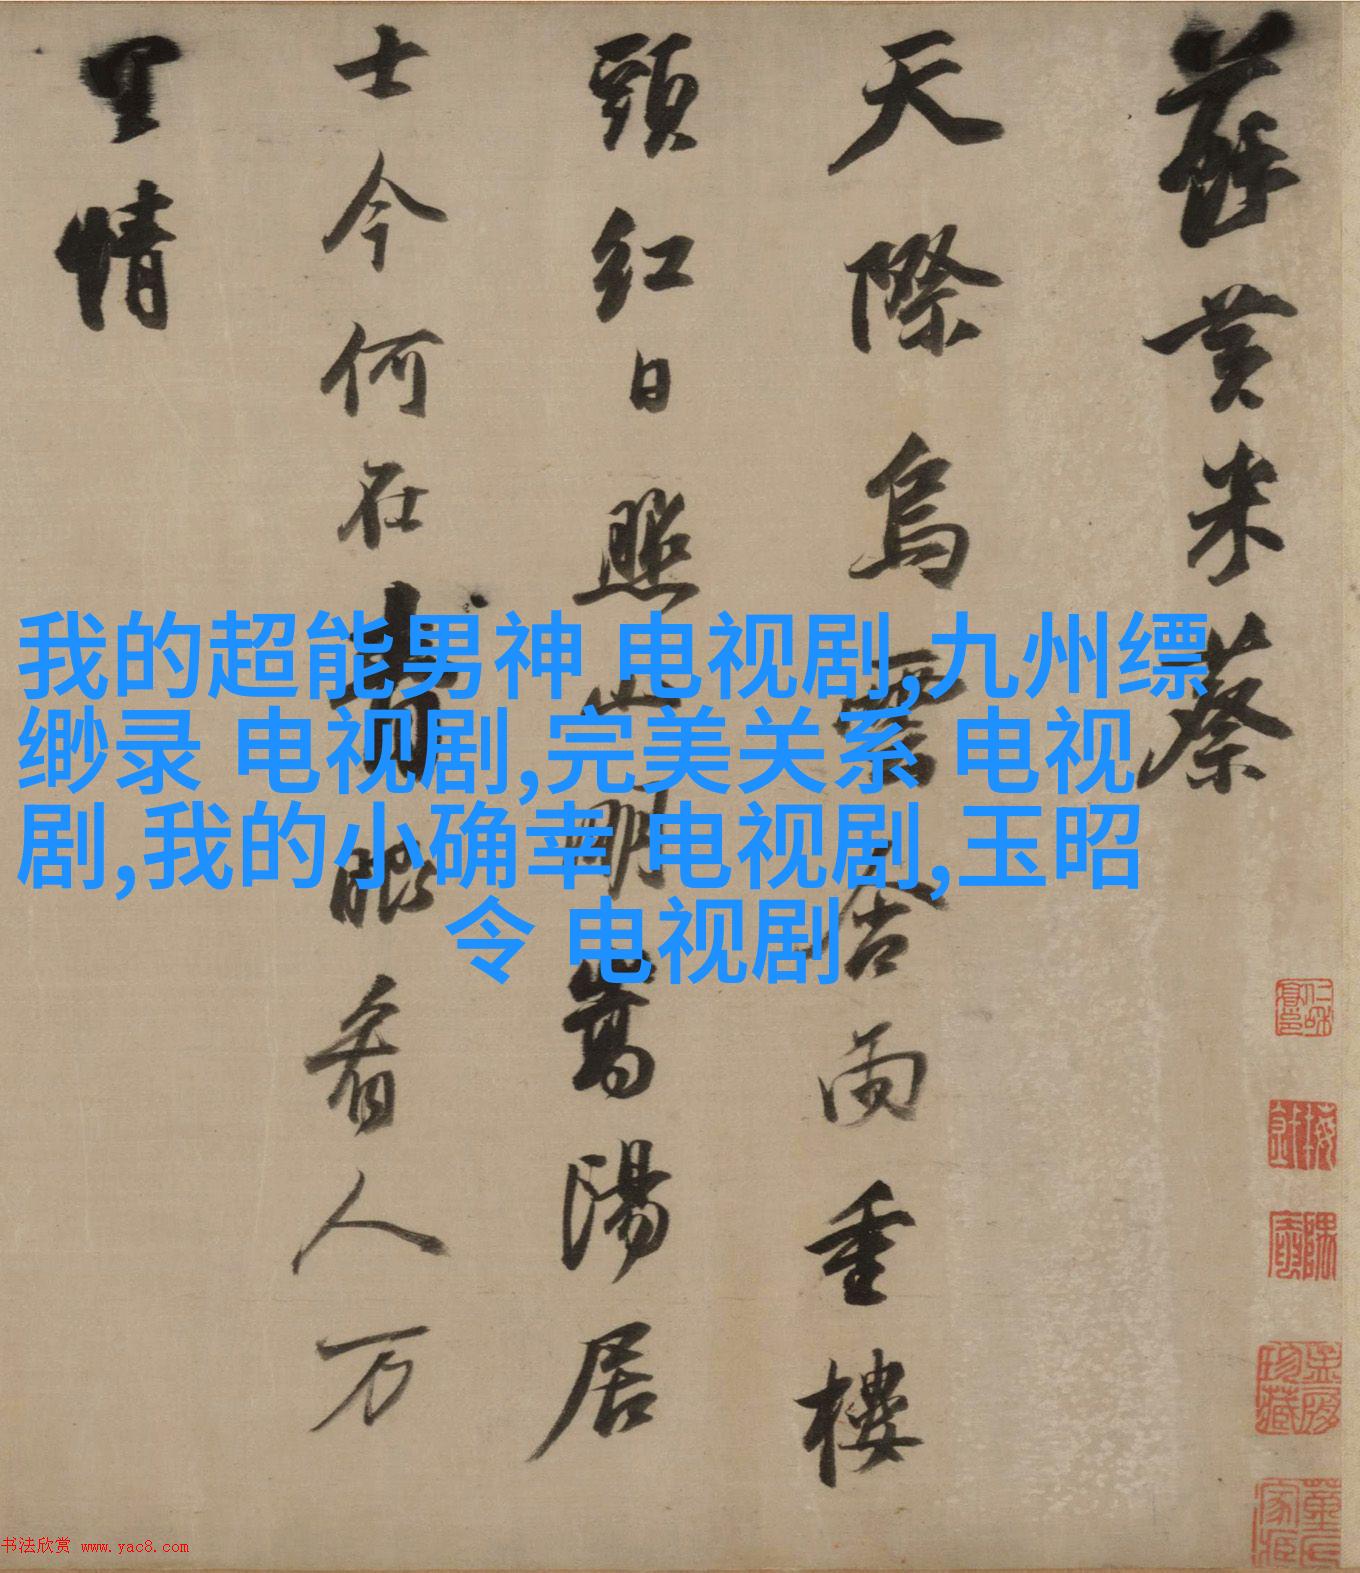 蘇黄米蔡
天際烏雲含雨重樓
頭紅日照山明嵩陽居
士今何在青眼看人万
里情
我的超能男神 电视剧,九州缥
缈录 电视剧,完美关系 电视
剧,我的小确幸 电视剧,玉昭
令 电视剧
书法欣赏 www.yac8.com